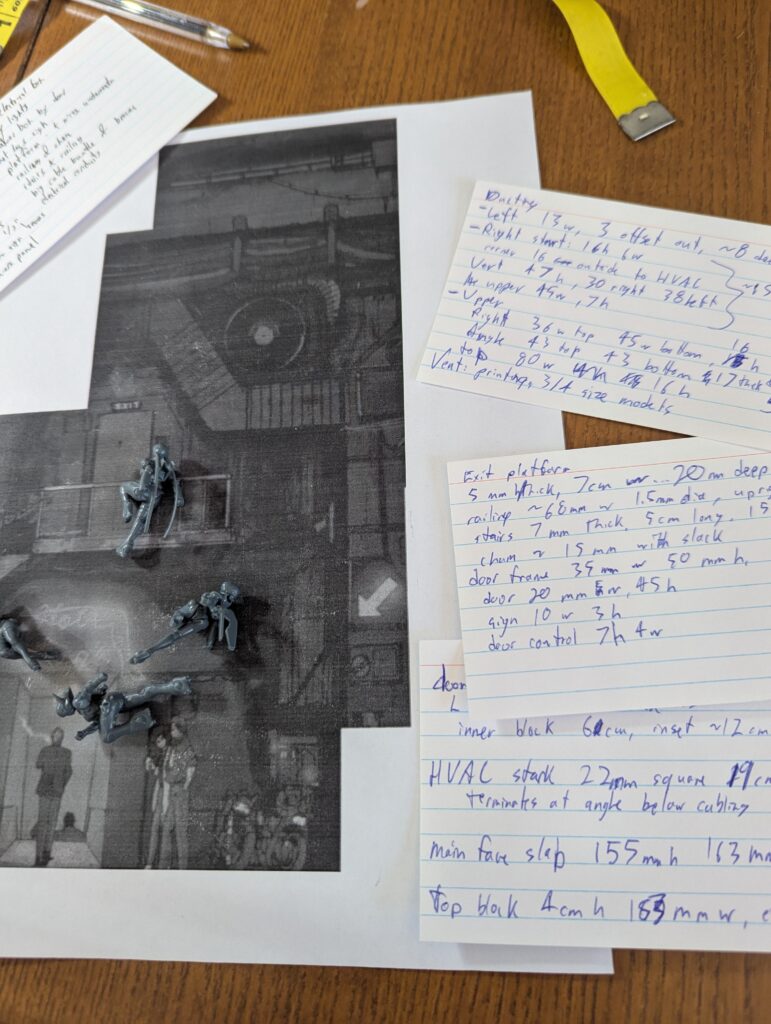 electrical box
lights
box by door
platform & area underneath
railing & chain
stairs & railing
by cable bundle & braces
electrical conduits
EXIT
Ducting
-Left 13w, 3 offset out, ~8 dee
-Right start: 16h 6w
corner 16 outside to HVAC
Vert 47h, 30 right 38 left
upper 45w, 7h
-Upper
Right 36w top 45w bottom, 16 h
Angle 43 top 43 bottom 17 thick
top 80w 16h
Vent: printing, 3/4 size models
Exit platform
5 mm thick, 7cm w... 20mm deep
railing ~68mm w 1.5mm dia, upr
stairs 7mm thick, 5cm long, 15
chain ~15mm with slack
door frame 35mm w 50mm h,
door 20mm w, 45h
sign 10w 3h
door control 7h 4w
door
inner block 6cm, inset ~12cm
HVAC stack 22mm square 19cm
terminates at angle below cabling
main face slab 155mm h 163 mm
Top block 4cm h 163mm w,